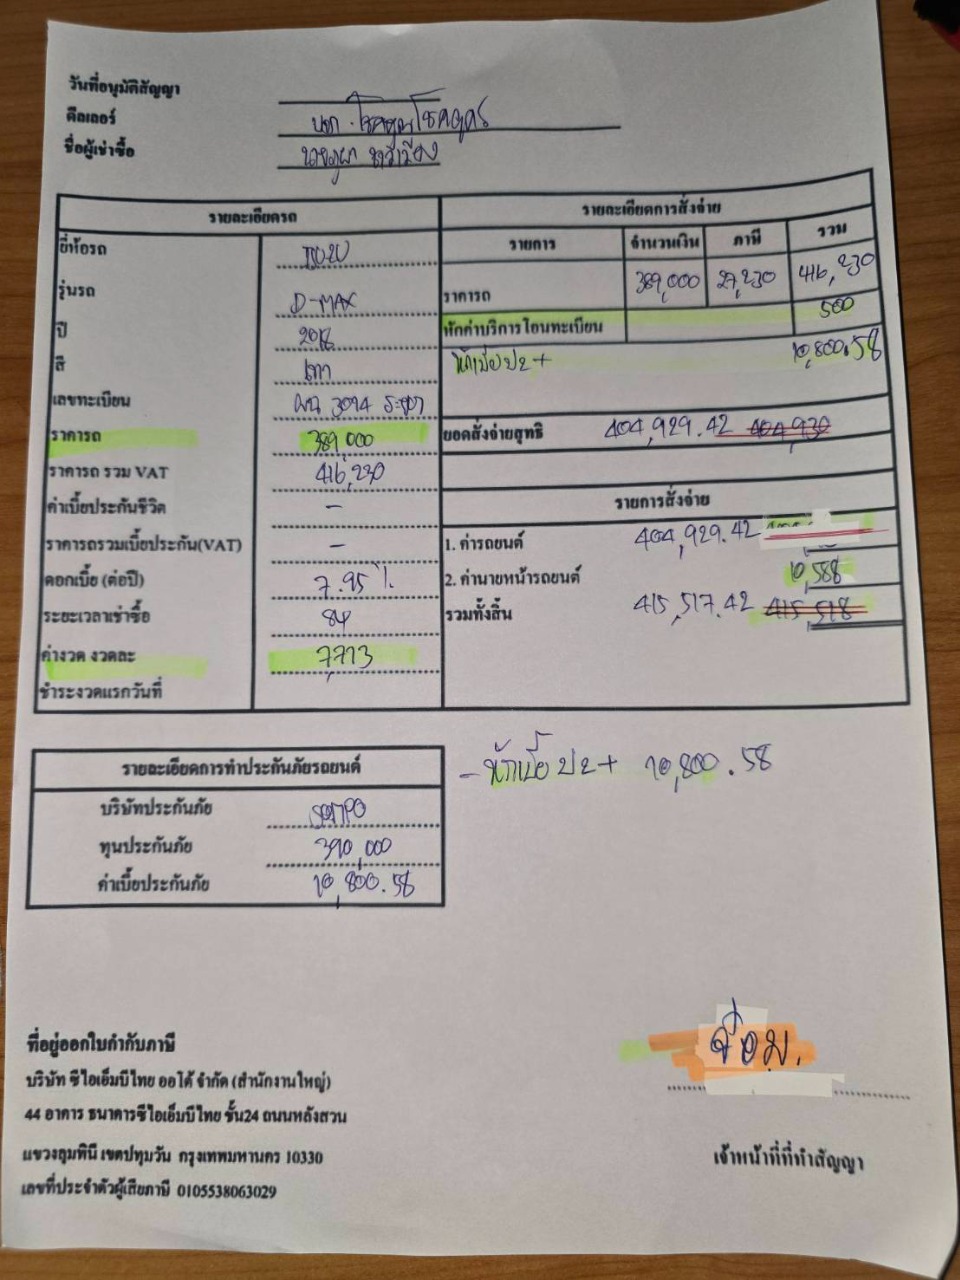 วันที่อนุมัติสัญญา
ดีลเลอร์ บจก. โชคคูณโชคคูณ
ชื่อผู้เช่าซื้อ
รายละเอียดรถ
ยี่ห้อรถ ISUZU
รุ่นรถ D-MAX
ปี 2018
สี เทา
เลขทะเบียน 3094 ระยอง
ราคารถ 389,000
ราคารถ รวม VAT 416,230
ค่าเบี้ยประกันชีวิต -
ราคารถรวมเบี้ยประกัน(VAT) -
ดอกเบี้ย (ต่อปี) 7.95 %
ระยะเวลาเช่าซื้อ 84
ค่างวด งวดละ 7,713
ชำระงวดแรกวันที่
รายละเอียดการสั่งจ่าย
รายการ จำนวนเงิน ภาษี รวม
ราคารถ 389,000 27,230 416,230
หักค่าบริการโอนทะเบียน 500
หักเบี้ย ป2+ 10,800.58
ยอดสั่งจ่ายสุทธิ 404,929.42 404,930
รายการสั่งจ่าย
1. ค่ารถยนต์ 404,929.42
2. ค่านายหน้ารถยนต์ 10,588
รวมทั้งสิ้น 415,517.42 415,518
- หักเบี้ย ป2+ 10,800.58
รายละเอียดการทำประกันภัยรถยนต์
บริษัทประกันภัย SOMPO
ทุนประกันภัย 390,000
ค่าเบี้ยประกันภัย 10,800.58
ที่อยู่ออกใบกำกับภาษี
บริษัท ซีไอเอ็มบีไทย ออโต้ จำกัด (สำนักงานใหญ่)
44 อาคาร ธนาคารซีไอเอ็มบีไทย ชั้น24 ถนนหลังสวน
แขวงลุมพินี เขตปทุมวัน กรุงเทพมหานคร 10330
เลขที่ประจำตัวผู้เสียภาษี 0105538063029
จ๋อม.
เจ้าหน้าที่ที่ทำสัญญา